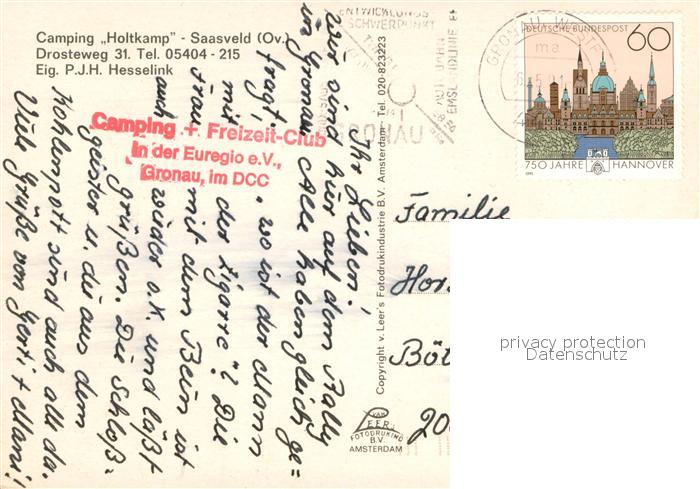 Camping „Holtkamp" - Saasveld (Ov.)
Drosteweg 31. Tel. 05404 - 215
Eig. P.J.H. Hesselink
ENTWICKLUNGS
SCHWERPUNKT
EMSLANDLINIE
GRONAU
GRONAU, WESTF
ma
DEUTSCHE BUNDESPOST
60
750 JAHRE HANNOVER
Camping + Freizeit-Club
in der Euregio e.V.,
Gronau, im DCC
Ihr Lieben!
wir sind hier auf dem Rally
in Gronau. Alle haben gleich ge=
fragt, „wo ist der Mann
mit der Zigarre"? Die
Frau mit dem Bein ist
auch wieder o.k. und läßt
grüßen. Die Schloß=
geister u. die aus dem
Kohlenpott sind auch alle da.
Viele Grüße von Gerti + Mami!
Copyright v. Leer's Fotodrukindustrie B.V. Amsterdam - Tel. 020-823223
VAN
LEER'S
FOTODRUKIND
B.V.
AMSTERDAM
Familie
Hor
Böt
20
privacy protection
Datenschutz